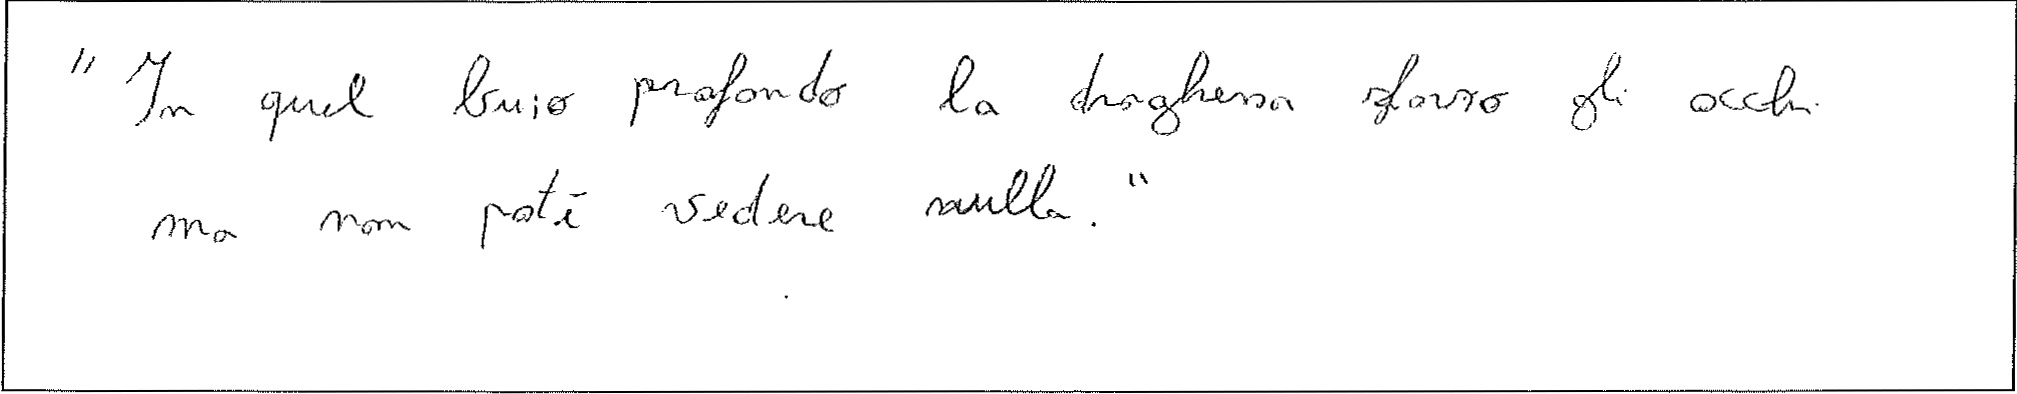 "In quel buio profondo la draghessa sforzo gli occhi
ma non poté vedere nulla."